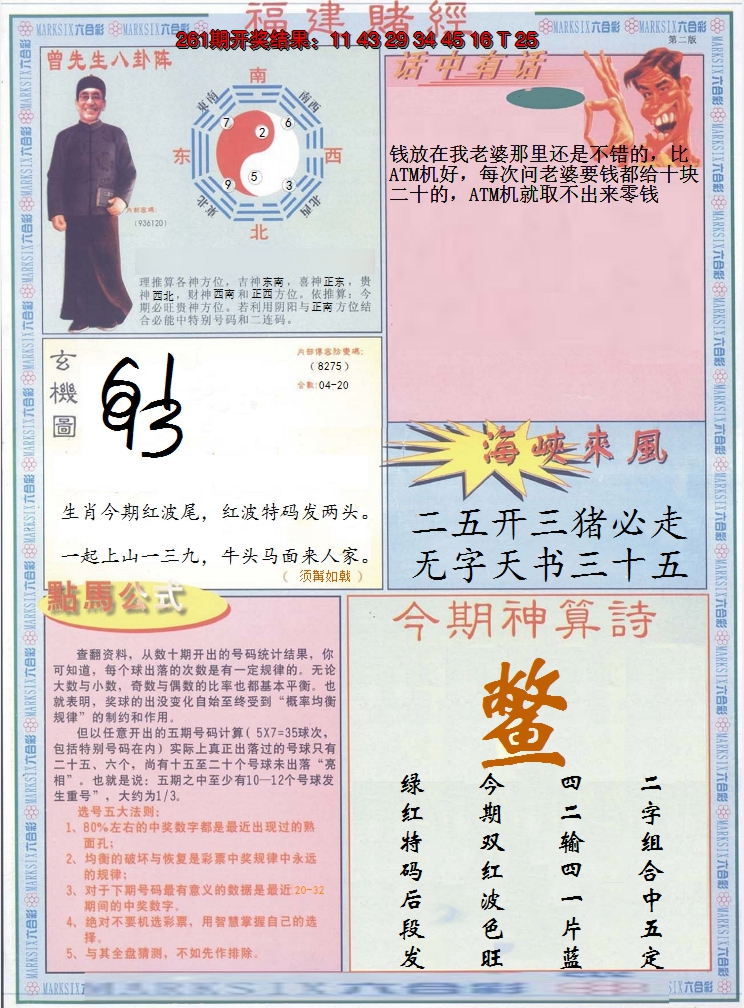 福建賭經
261期开奖结果：11 43 29 34 45 16 T 25
第二版
曾先生八卦阵
南
东南
南西
7
2
6
东
西
9
5
3
東北
北西
北
内部密碼：
（936120）
理推算各神方位，吉神东南，喜神正东，贵
神西北，财神西南和正西方位。依推算：今
期必旺贵神方位。若利用阴阳与正南方位结
合必能中特别号码和二连码。
话中有话
钱放在我老婆那里还是不错的，比
ATM机好，每次问老婆要钱都给十块
二十的，ATM机就取不出来零钱
玄機圖
（8275）
合数:04-20
生肖今期红波尾，红波特码发两头。
一起上山一三九，牛头马面来人家。
（ 须髯如戟 ）
海峽來風
二五开三猪必走
无字天书三十五
點馬公式
查翻资料，从数十期开出的号码统计结果，你
可知道，每个球出落的次数是有一定规律的。无论
大数与小数，奇数与偶数的比率也都基本平衡。也
就表明，奖球的出没变化自始至终受到“概率均衡
规律”的制约和作用。
但以任意开出的五期号码计算（5X7=35球次，
包括特别号码在内）实际上真正出落过的号球只有
二十五、六个，尚有十五至二十个号球未出落“亮
相”。也就是说：五期之中至少有10—12个号球发
生重号”，大约为1/3。
选号五大法则：
1、80%左右的中奖数字都是最近出现过的熟
面孔；
2、均衡的破坏与恢复是彩票中奖规律中永远
的规律；
3、对于下期号码最有意义的数据是最近20-32
期间的中奖数字。
4、绝对不要机选彩票，用智慧掌握自己的选
择。
5、与其全盘猜测，不如先作排除。
今期神算詩
鳖
二字组合中五定
四二输四一片蓝
今期双红波色旺
绿红特码后段发
MARKSIX六合彩